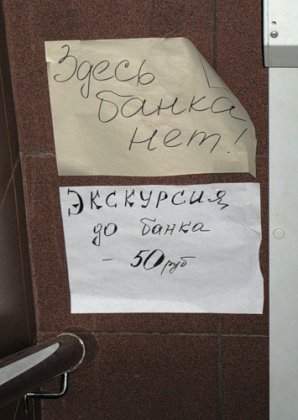 Здесь
банка
нет!
ЭКСКУРСИЯ
до банка
- 50 руб